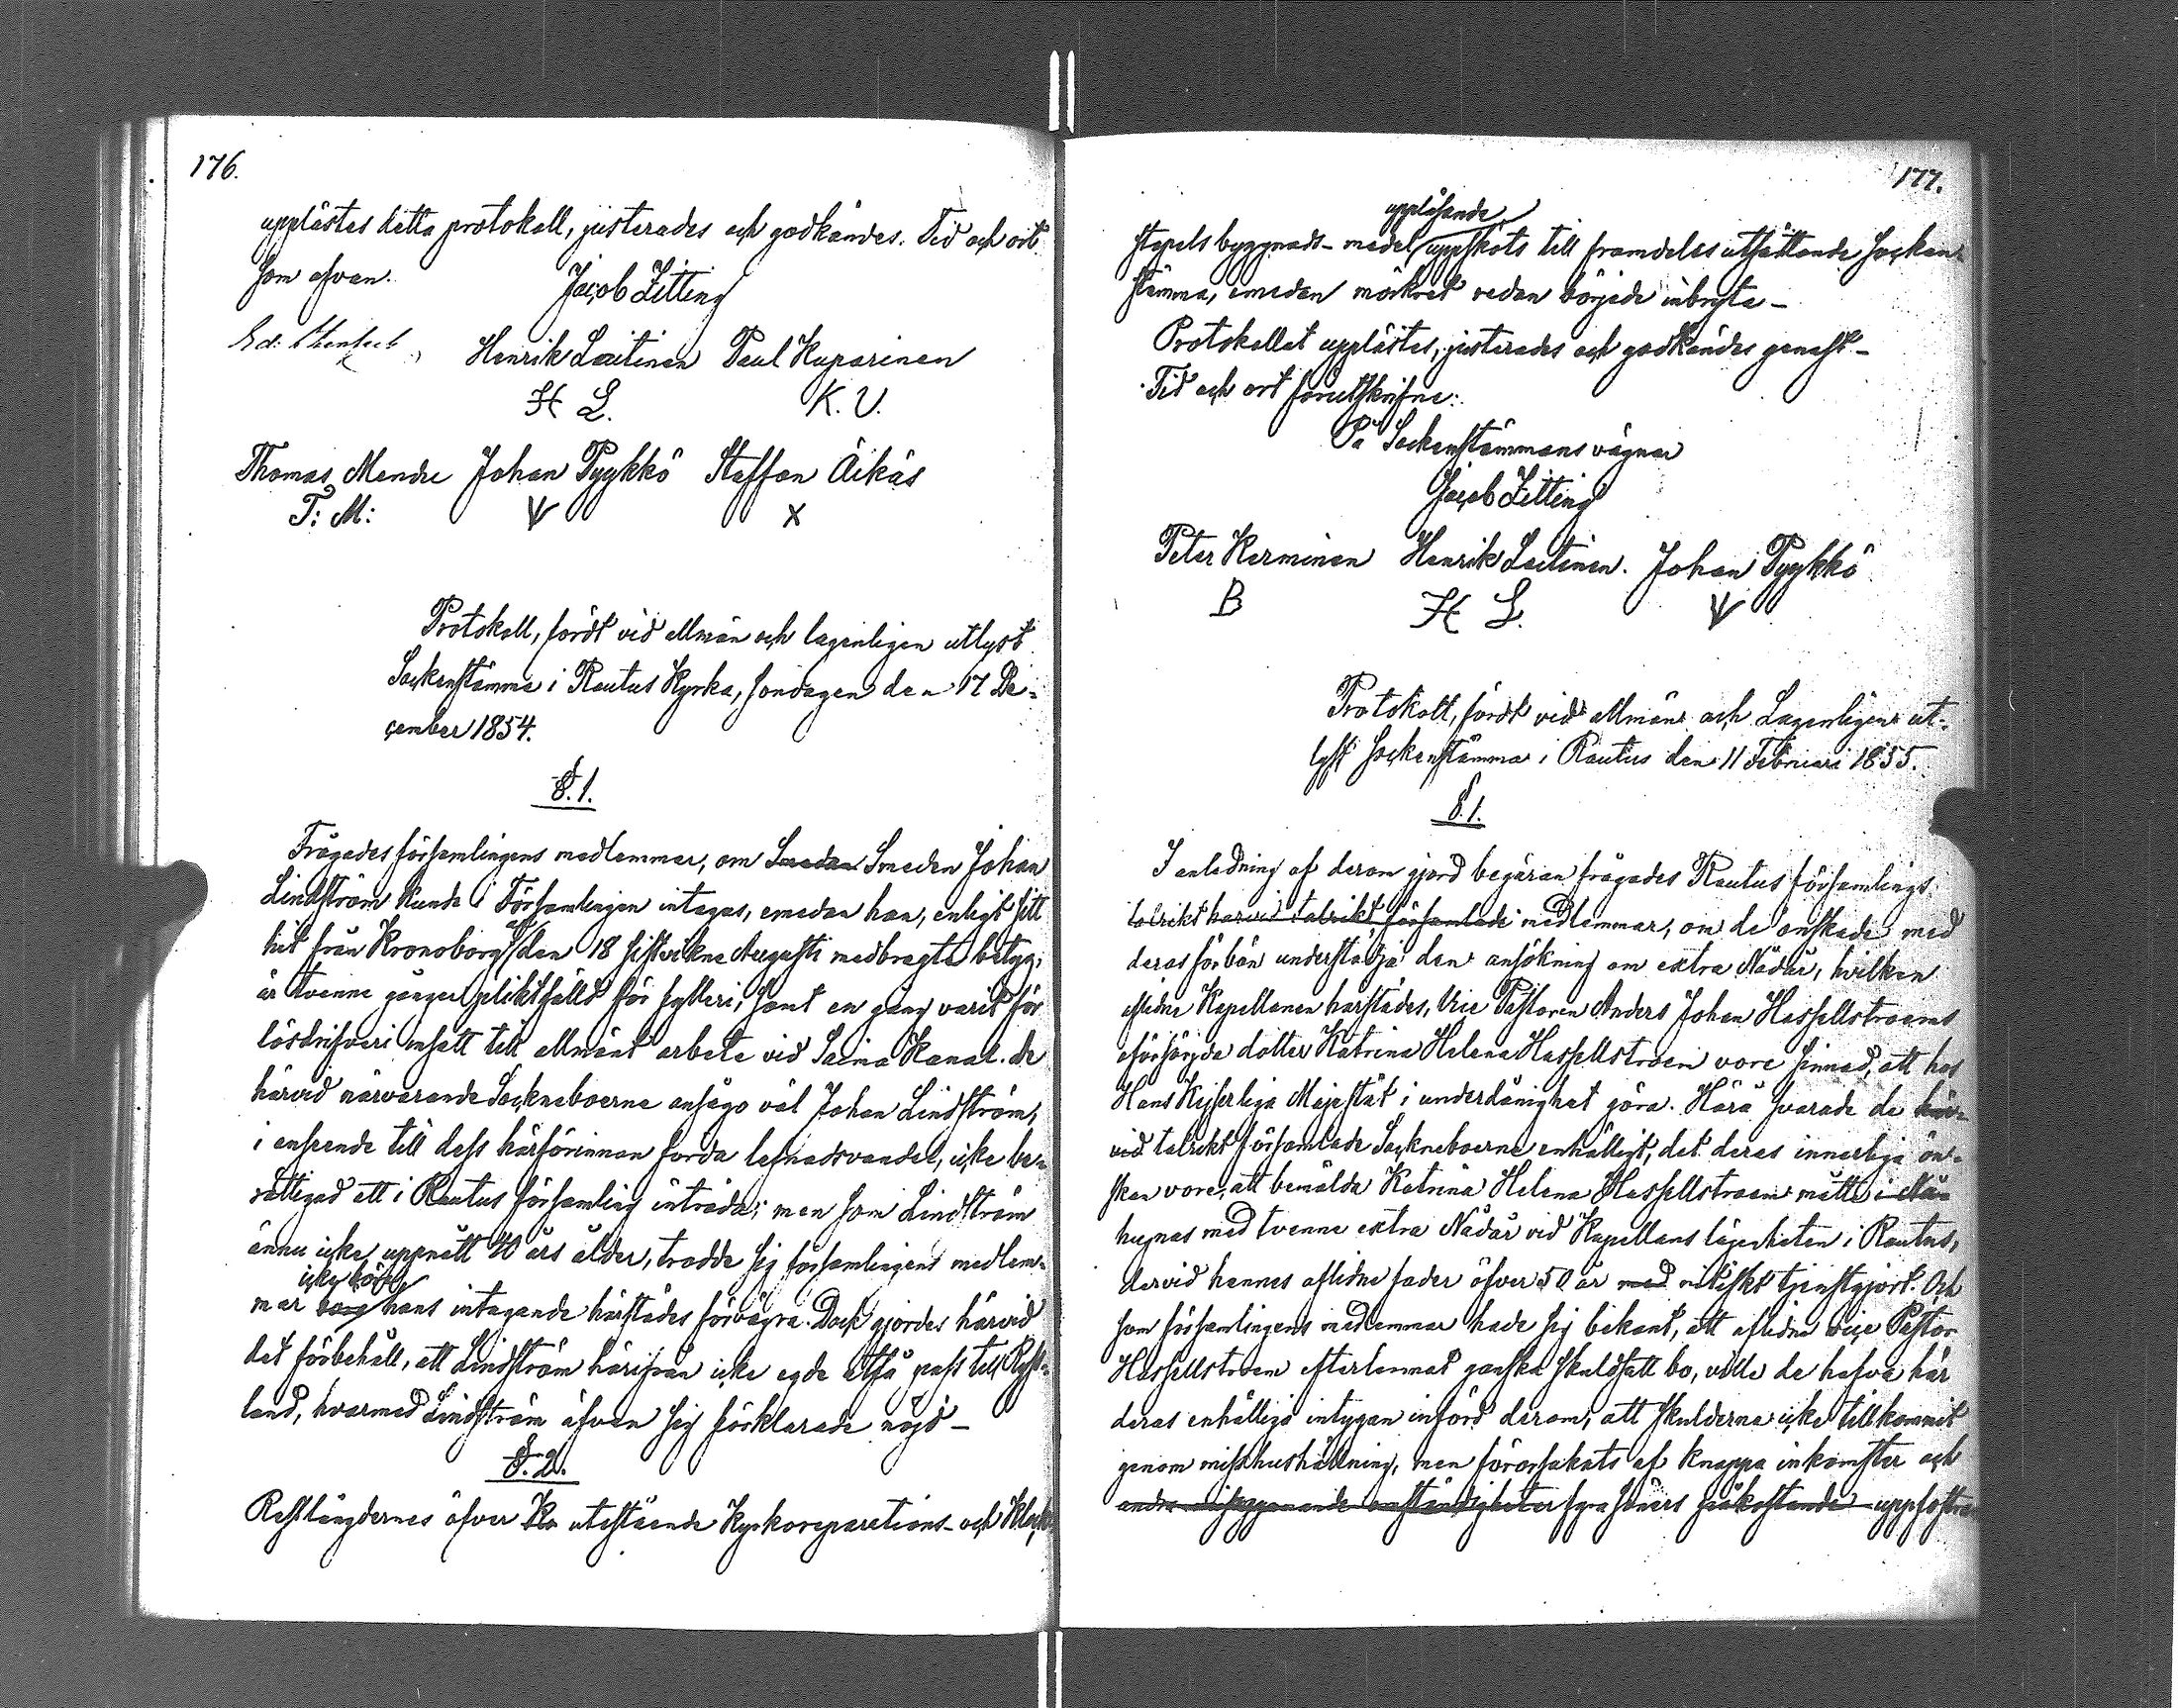 176.
upplästes detta protokoll, justerades och godkändes. Tid och ort
som ofvan.
Jacob Zitting
Henrik Laitinen Paul Kuparinen
H L. K. V.
Thomas Mendre Johan Pyykkö Staffan Äikäs
T: M: X
Protokoll, fördt vid allmän och lagenligen utlyst
Sockenstämma i Rautus Kyrka, söndagen den 17 De-
cember 1854.
§. 1.
Frågades församlingens medlemmar, om Smeden Smeden Johan
Lindström kunde i Församlingen intagas, emedan han, enligt sitt
hit från Kronoborg af den 18 sistvikne Augusti medbragta betyg,
är tvenne gånger pliktfälld för fylleri, samt en gång varit för
lösdrifveri insatt till allmänt arbete vid Saima Kanal. De
härvid närvarande Sockneboerne ansågo väl Johan Lindström,
i anseende till dess härförinnan förda lefnadsvandel, icke be-
rättigad att i Rautus församling inträda; men som Lindström
ännu icke uppnått 40 års ålder, trodde sig församlingens medlem-
icke böra
mar hans intagande härstädes förvägra. Dock gjordes härvid
det förbehåll, att Lindström härifrån icke egde att få pass till Ryss-
land, hvarmed Lindström äfven sig förklarade nöjd -
§. 2.
Restlängdernes öfver Ko utestående Kyrkoreparations- och Klock-
177.
uppläsande
stapels byggnads- medel uppsköts till framdeles utsättande Socken-
stämma, emedan mörkret redan började inbryta -
Protokollet upplästes, justerades och godkändes genast -
Tid och ort förutskrifne:
På Sockenstämmans vägnar
Jacob Zitting
Peter Kerminen Henrik Laitinen. Johan Pyykkö
B H L.
Protokoll, fördt vid allmän och Lagenligen ut-
lyst Sockenstämma i Rautus den 11 Februari 1855.
§. 1.
I anledning af derom gjord begäran frågades Rautus församlings
talrikt härvid talrikt församlade medlemmar, om de önskade med
deras förbön understödja den ansökning om extra Nådår, hvilken
aflidne Kapellanen härstädes, Vice Pastoren Anders Johan Hassellstroems
oförsörjda dotter Katrina Helena Hassellstroem vore sinnad, att hos
Hans Kejserliga Majestät i underdånighet göra. Härå svarade de här-
vid talrikt församlade Sockneboerne enhälligt, det deras innerliga ön-
skan vore, att bemälda Katrina Helena Hassellstroem måtte i Nåd
hugnas med tvenne extra Nådår vid Kapellans lägenheten i Rautus,
dervid hennes aflidne fader öfver 50 år med nitiskt tjenstgjort. Och
som församlingens medlemmar hade sig bekant, att aflidne Vice Pastor
Hassellstroem efterlemnat ganska skuldsatt bo, ville de hafva här
deras enhälliga intygan införd derom, att skulderna icke tillkommit
genom misshushållning, men förorsakats af knappa inkomster och
andra omständigheter fyra söners uppfostran